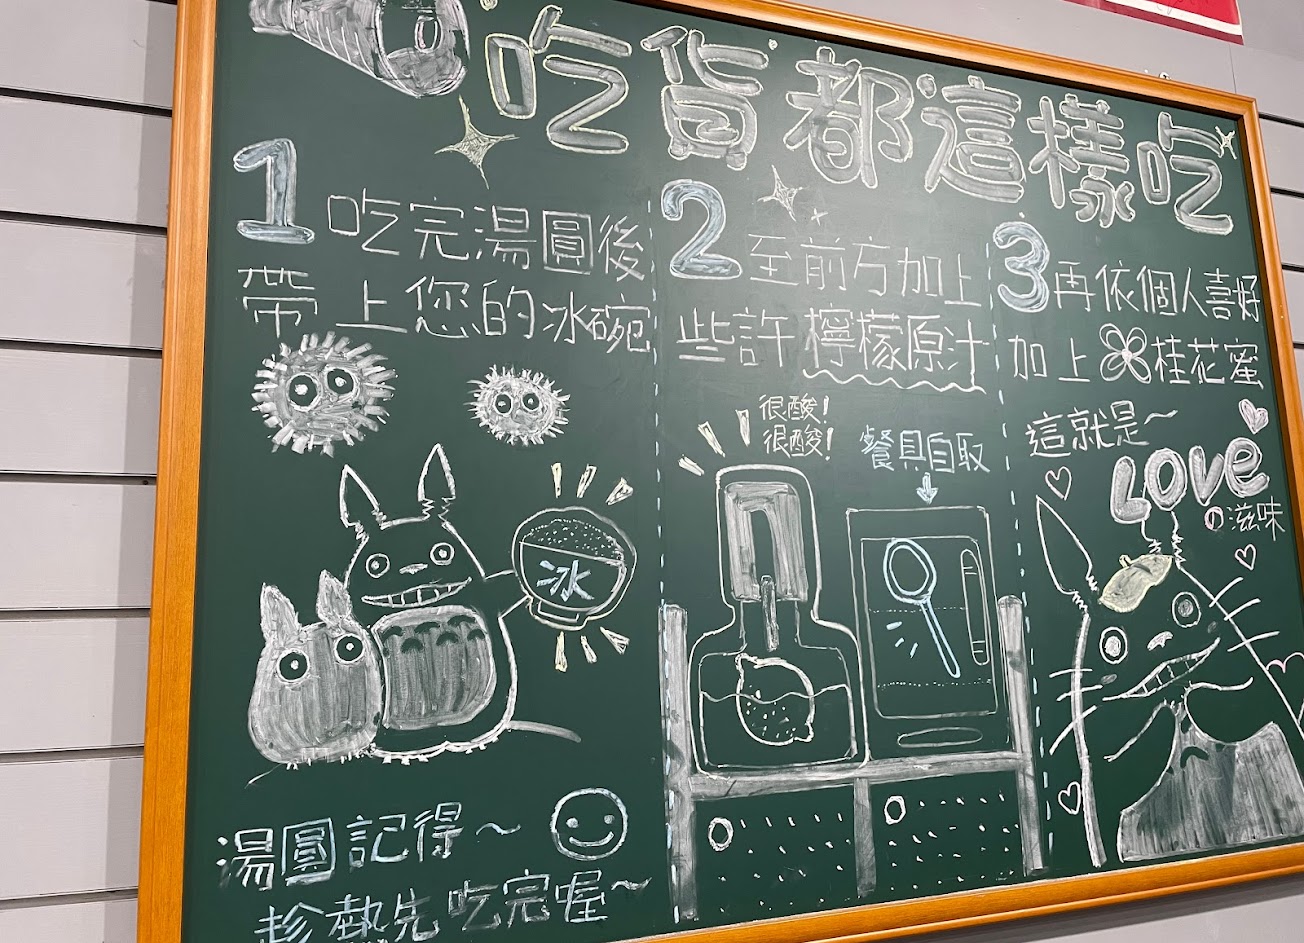 吃貨都這樣吃
1 吃完湯圓後
帶上您的冰碗
冰
湯圓記得~
趁熱先吃完喔~
2 至前方加上
些許檸檬原汁
很酸!
很酸!
餐具自取
3 再依個人喜好
加上桂花蜜
這就是~
LOVE
の滋味